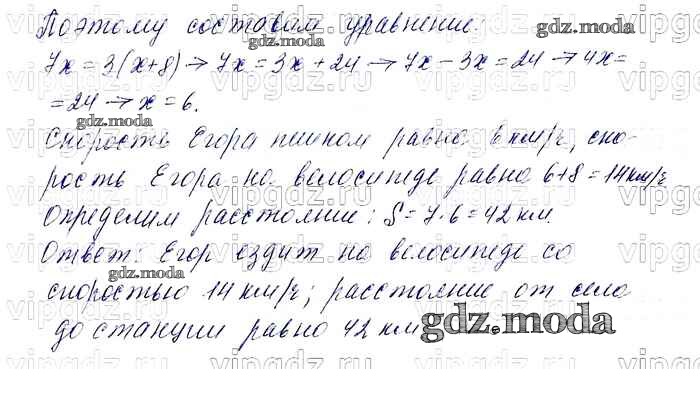 Поэтому составим уравнение:
7x = 3(x+8) → 7x = 3x + 24 → 7x − 3x = 24 → 4x =
= 24 → x = 6.
Скорость Егора пешком равна 6 км/ч, ско-
рость Егора на велосипеде равна 6+8 = 14 км/ч
Определим расстояние: S = 7·6 = 42 км.
Ответ: Егор ездит на велосипеде со
скоростью 14 км/ч; расстояние от села
до станции равно 42 км
gdz.moda
gdz.moda
gdz.moda
gdz.moda
gdz.moda
vipgdz.ru